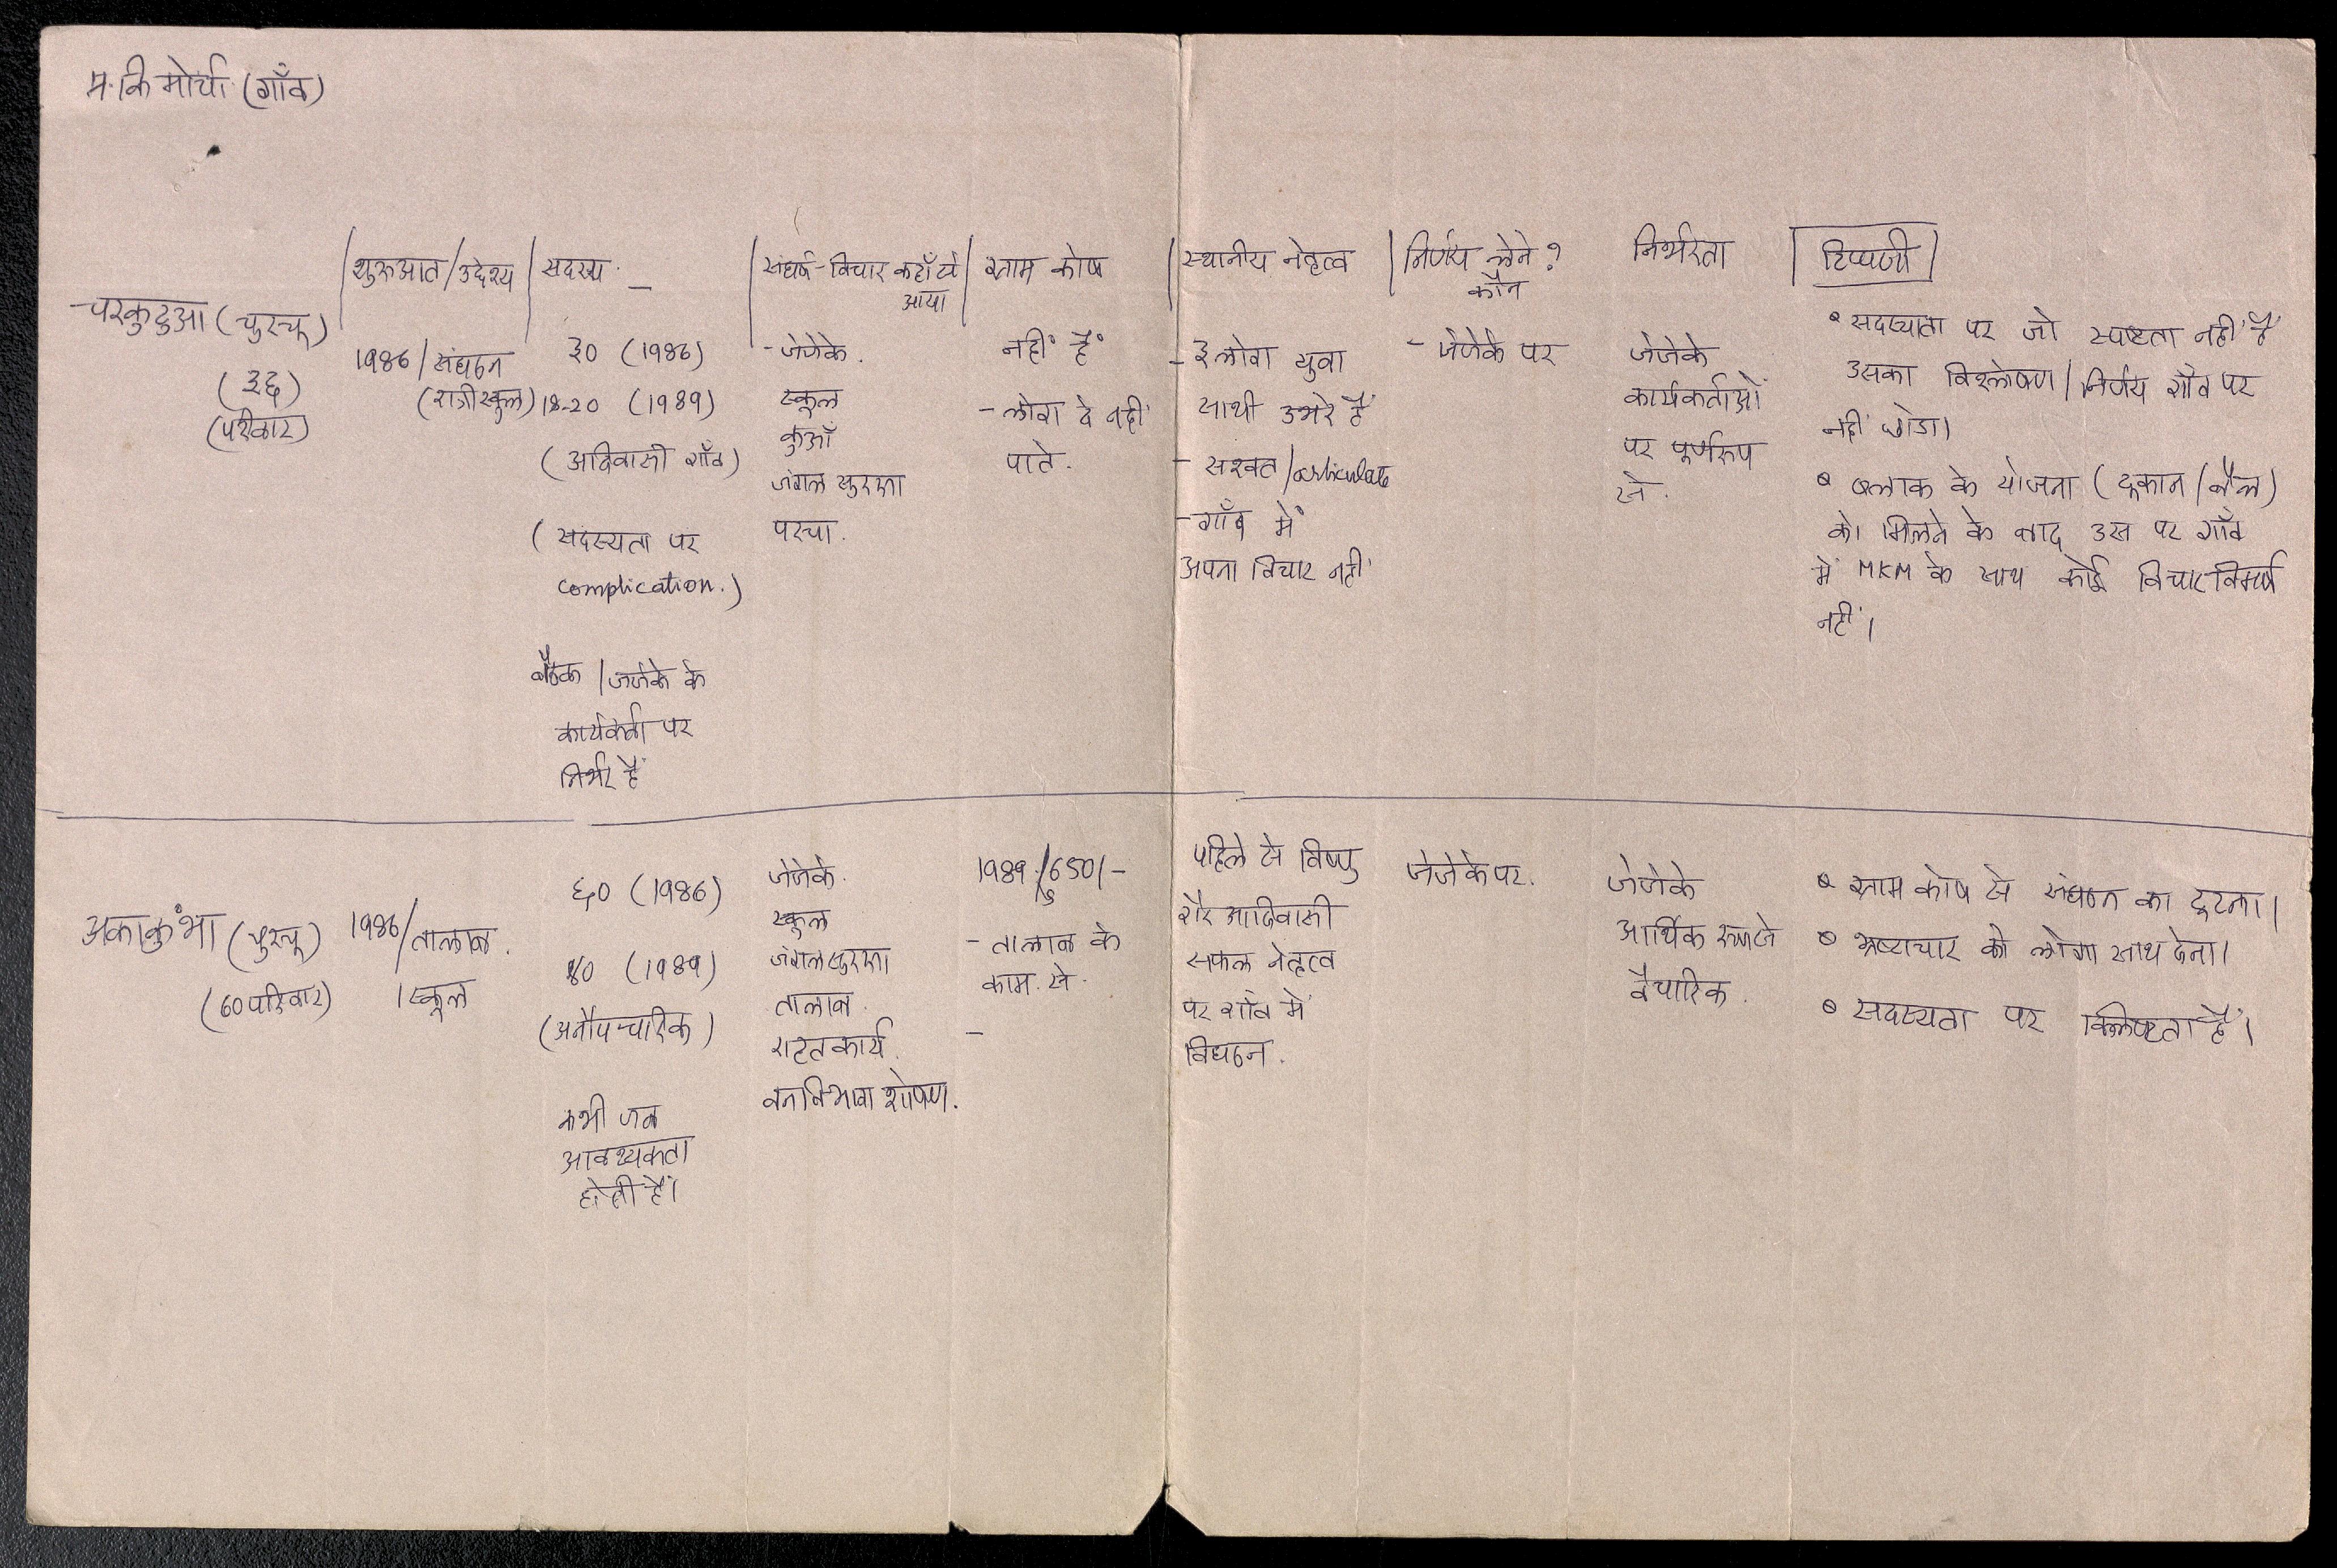 म. कि मोर्चा (गाँव)
शुरुआत/उद्देश्य
सदस्य
संघर्ष-विचार कहाँ से
आया
ग्राम कोष
स्थानीय नेतृत्व
निर्णय लेने?
कौन
निर्भरता
टिप्पणी
परकुटुआ (चुरचू)
(३६)
(परिवार)
1986/संघठन
(रात्री स्कूल)
३० (1986)
18-20 (1989)
(आदिवासी गाँव)
(सदस्यता पर
complication.)
बैठक / जेजेके के
कार्यकर्ता पर
निर्भर है
- जेजेके.
स्कूल
कुआँ
जंगल सुरक्षा
परचा.
नहीं है
- लोग दे नहीं
पाते.
- ३ लोग युवा
साथी उभरे हैं
- सशक्त/articulate
- गाँव में
अपना विचार नहीं
- जेजेके पर
जेजेके
कार्यकर्ताओं
पर पूर्णरूप
से.
• सदस्यता पर जो स्पष्टता नहीं है
उसका विश्लेषण/निर्णय गाँव पर
नहीं छोडा।
• ब्लाक के योजना (दूकान/बैल)
को मिलने के बाद उस पर गाँव
में MKM के साथ कोई विचार विमर्ष
नहीं।
अकाकुंभा (चुरचू)
(60 परिवार)
1986/तालाब.
/स्कूल
६० (1986)
४० (1989)
(अनौपचारिक)
कभी जब
आवश्यकता
होती है।
जेजेके.
स्कूल
जंगल सुरक्षा
तालाब.
राहतकार्य.
वन विभाग शोषण.
1989/650/-
- तालाब के
काम. से.
-
पहिले से विष्णु
गैर आदिवासी
सफल नेतृत्व
पर गाँव में
विघठन.
जेजेके पर.
जेजेके
आर्थिक रूप से
वैचारिक.
• ग्राम कोष से संघठन का टूटना।
• भ्रष्टाचार को लोगो साथ देना।
• सदस्यता पर क्लिष्टता है।